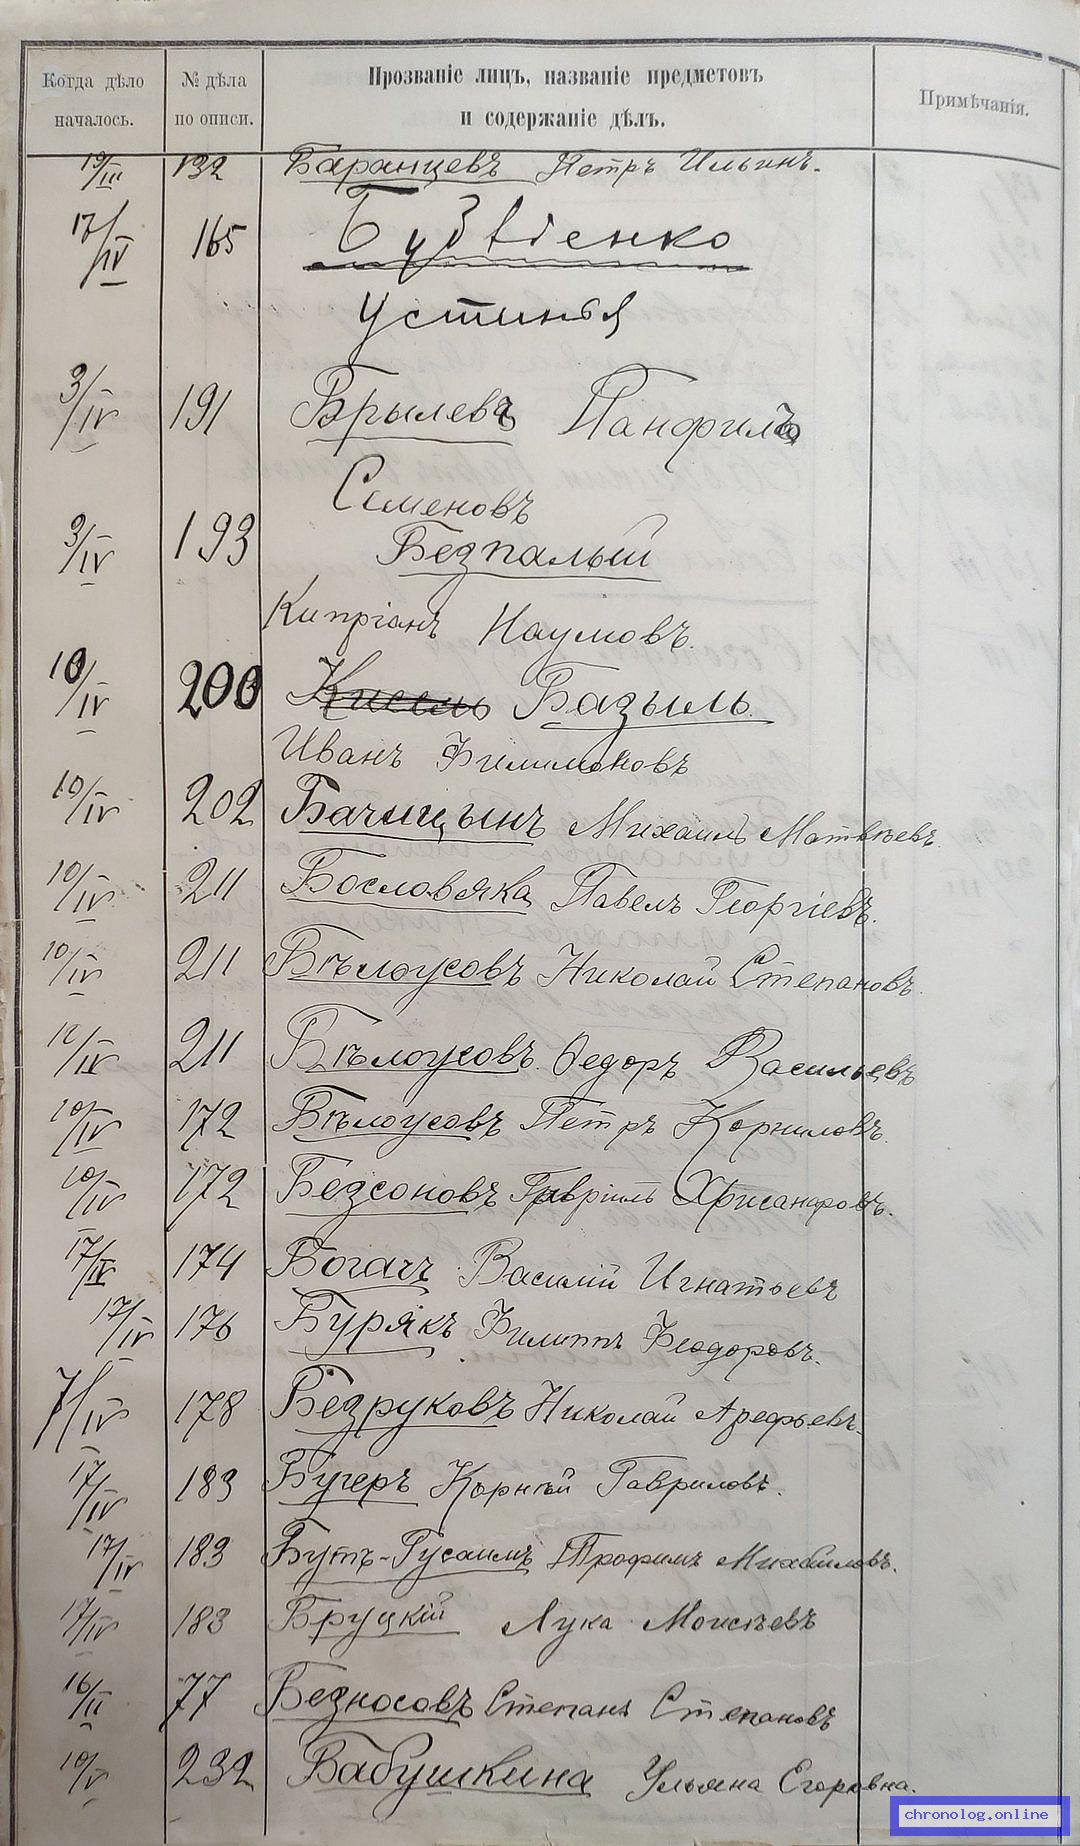 Когда дѣло началось.
№ дѣла по описи.
Прозваніе лицъ, названіе предметовъ
и содержаніе дѣлъ.
Примѣчанія.
19/III 132 Баранцевъ Петръ Ильинъ.
17/IV 165 Бузвіенко
Устинья
3/IV 191 Брылевъ Панфилъ
Семеновъ
3/IV 193 Безпалый
Кипріанъ Наумовъ.
10/IV 200 Кисель Базыль.
Иванъ Филимоновъ
10/IV 202 Бачицынъ Михаилъ Матвѣевъ
10/IV 211 Бословяка Павелъ Георгіевъ.
10/IV 211 Бѣлоусовъ Николай Степановъ.
10/IV 211 Бѣлоусовъ. Ѳедоръ Васильевъ
10/IV 172 Бѣлоусовъ Петръ Корниловъ.
10/IV 172 Безсоновъ Гавріилъ Хрисанфовъ.
17/IV 174 Богачъ Василій Игнатьевъ
17/IV 176 Бурякъ Филиппъ Феодоровъ.
7/IV 178 Безруковъ Николай Арефьевъ.
17/IV 183 Бугеръ Корнѣй Гавриловъ.
17/IV 183 Бутъ-Гусаимъ Трофимъ Михайловъ.
17/IV 183 Бруцкій Лука Моисѣевъ
16/II 77 Безносовъ Степанъ Степановъ
10/V 232 Бабушкина Ульяна Егоровна.
chronolog.online